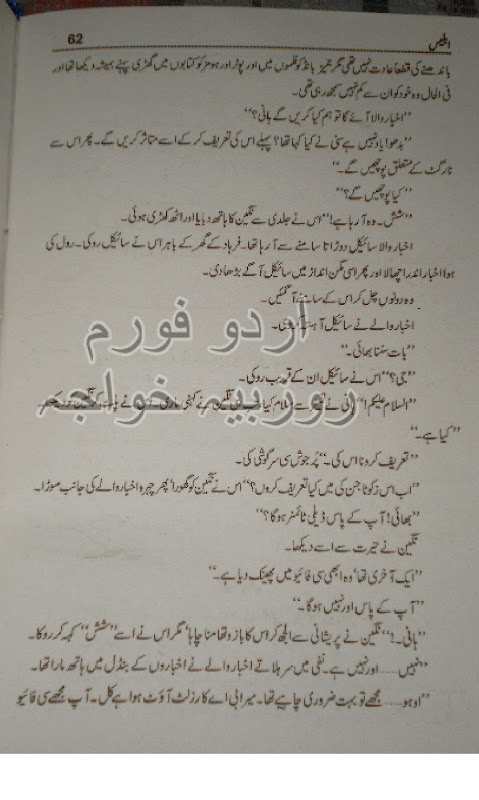 ابلیس
62
باندھنے کی قطعاً عادت نہیں تھی مگر جیمز بانڈ کو فلموں میں اور پوٹر اور ہومز کو کتابوں میں گھڑی پہنے ہمیشہ دیکھا تھا اور
فی الحال وہ خود کو ان سے کم نہیں سمجھ رہی تھی۔
"اخبار والا آئے گا تو ہم کیا کریں گے ہانی؟"
"بدھو! یاد نہیں ہے سنی نے کیا کہا تھا؟ پہلے اس کی تعریف کر کے اسے متاثر کریں گے۔ پھر اس سے
ٹارگٹ کے متعلق پوچھیں گے۔"
"کیا پوچھیں گے؟"
"شش۔ وہ آ رہا ہے!" اس نے جلدی سے نگین کا ہاتھ دبایا اور اٹھ کھڑی ہوئی۔
اخبار والا سائیکل دوڑاتا سامنے سے آ رہا تھا۔ فرہاد کے گھر کے باہر اس نے سائیکل روکی۔ رول کی
ہوا اخبار اندر اچھالا اور پھر اسی مگن انداز میں سائیکل آگے بڑھا دی۔
وہ دونوں چل کر اس کے سامنے آ گئیں۔
اخبار والے نے سائیکل آہستہ کر دی۔
"بات سننا بھائی۔"
"جی؟" اس نے سائیکل ان کے قریب روکی۔
"السلام علیکم!" ہانی نے سلام کیا نگین نے کہنی ماری۔ اس نے نگین کو دیکھا
"کیا ہے۔"
"تعریف کرو نا اس کی۔" پُر جوش سی سرگوشی کی۔
"اب اس زکوٹا جن کی میں کیا تعریف کروں؟" اس نے نگین کو گھورا پھر چہرہ اخبار والے کی جانب موڑا۔
"بھائی! آپ کے پاس ڈیلی ٹائمز ہو گا؟"
نگین نے حیرت سے اسے دیکھا۔
"ایک آخری تھا' وہ ابھی سی فائیو میں پھینک دیا ہے۔"
"آپ کے پاس اور نہیں ہو گا۔"
"ہانی۔!" نگین نے پریشانی سے الجھ کر اس کا بازو تھامنا چاہا' مگر اس نے اسے "شش" کہہ کر روکا۔
"نہیں...... اور نہیں ہے۔ نفی میں سر ہلاتے اخبار والے نے اخباروں کے بنڈل میں ہاتھ مارا تھا۔
"اوہو...... مجھے تو بہت ضروری چاہیے تھا۔ میرا بی اے کا رزلٹ آؤٹ ہوا ہے کل۔ آپ مجھے سی فائیو
اردو فورم
روزبیہ خواجہ